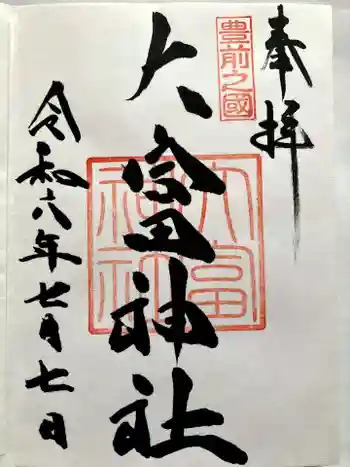 奉拝
豊前之國
大富神社
大富
神社
令和六年七月七日